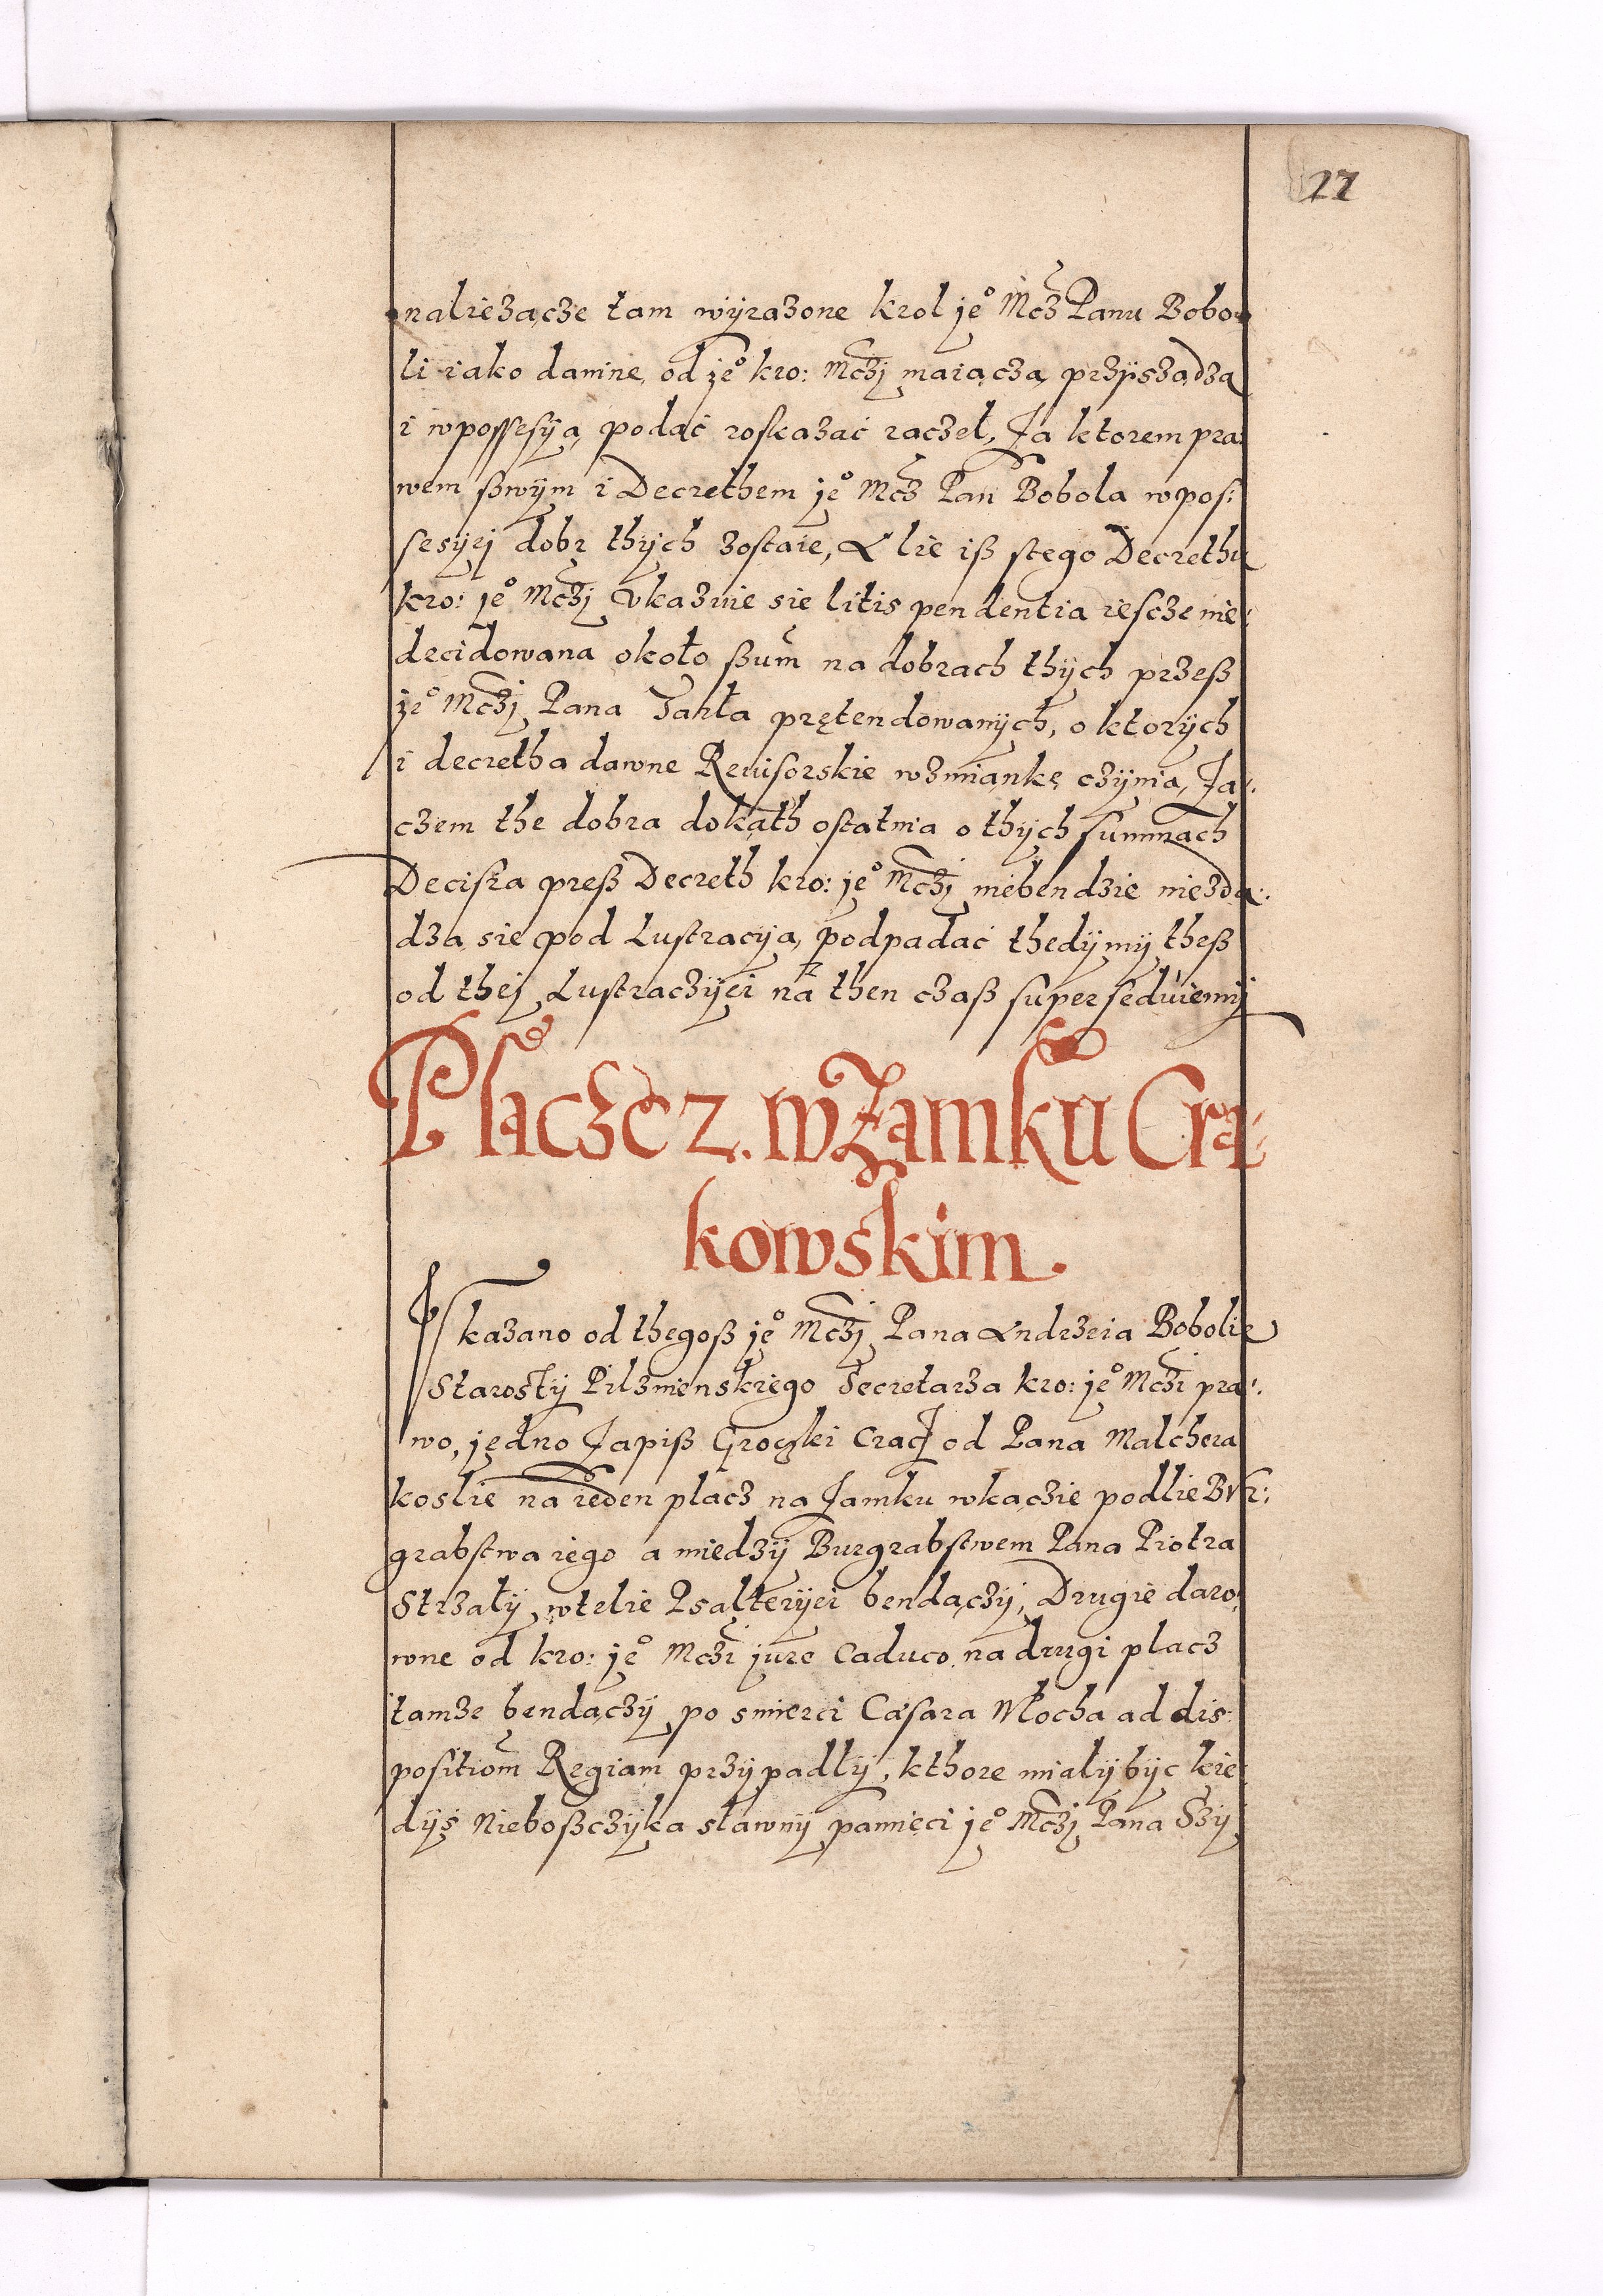 27
należącze tam wÿrazone krol je° Mcz Panu Bobo-
li iako danine od je° kro: Mczj maiącza, przÿszadza
i w possesÿą podać roskazać raczeł, Za ktorem pra:
wem ßwÿm i Decrethem je° Mcz Pan Bobola w pos:
sesÿej dobr thÿch zostaie, A lie iß stego Decrethu
kro: je° Mczj Vkazuie sie litis pendentia iescze nie:
decidowana około ßum na dobrach thÿch przeß
je° Mczj Pana Tarła prętendowanÿch, o ktorÿch
i decretha dawne Reuisorskie wzmiankę czÿnia, Za:
czem the dobra dokąth ostatnia o thÿch summach
Decisia preß Decreth kro: je° Mczj niebendzie niezda:
dza sie pod Lustracÿą podpadać thedÿ mÿ theß
od thej Lustraczÿei na then czaß superseduiemÿ
Placze 2. w Zamku Cra:
kowskim.
Vkazano od thegoß je° Mczj Pana Andrzeia Bobolie
Starostÿ Pilznienskiego Secretarza kro: je° Mczi pra:
wo, jedno Zapiß Groczki Crac: od Pana Malchera
koslie na ieden placz na Zamku w kączie podlie Bur:
grabstwa iego a miedzÿ Burgrabstwem Pana Piotra
Strzałÿ w telie Psałterÿei bendączÿ, Drugie daro:
wne od kro: je° Mczi jure Caduco na drugi placz
tamze bendączÿ po smierci Cæsara Włocha ad dis:
positiom Regiam przÿpadłÿ, kthore miałÿ bÿc kie:
dÿs Nieboßczÿka sławnÿ pamieci je° Mczj Pana Szÿ